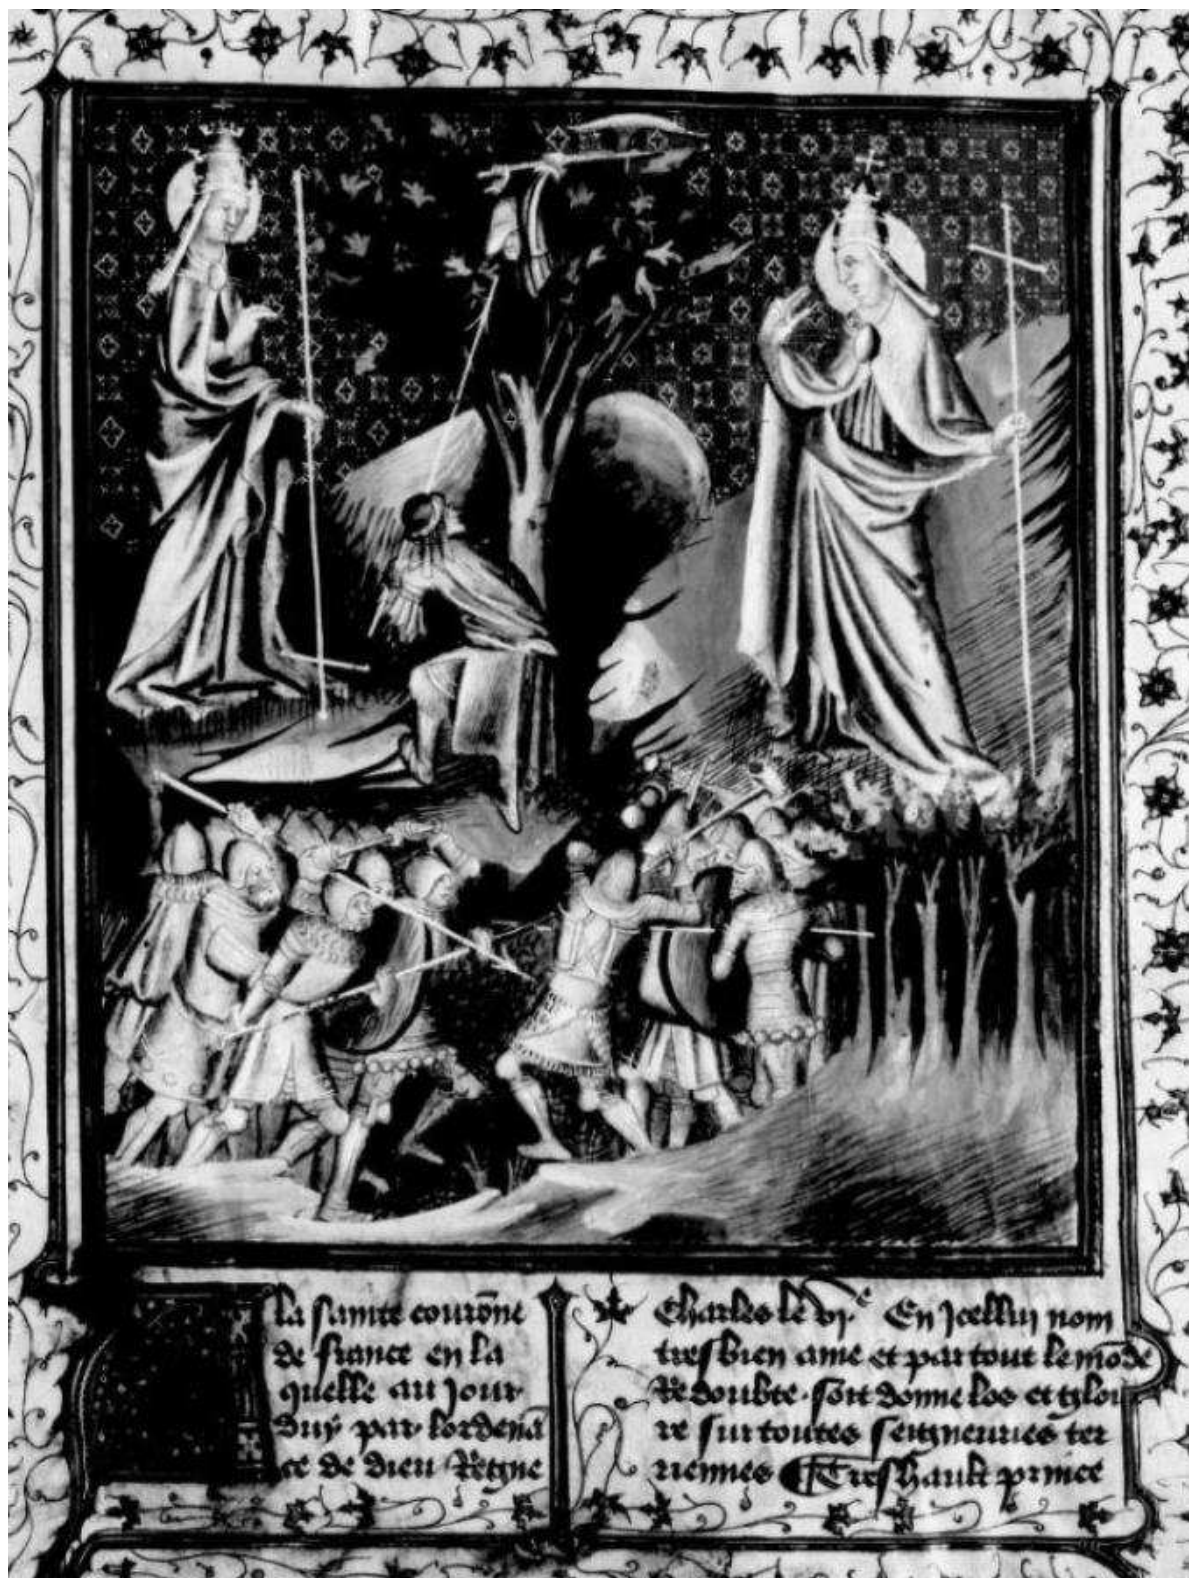 A la sainte couro̅ne
de france en la
quelle au jour
duy par lordena̅
ce de dieu Regne
Charles le vj.e En Jcelluj nom
tres bien ame et par tout le mo̅de
Redoubte. soit donne los et gloi
re sur toutes seigneuries ter
riennes Tres hault prince